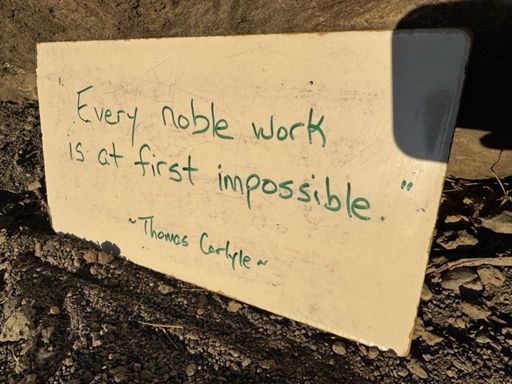 "Every noble work
is at first impossible."
~Thomas Carlyle~